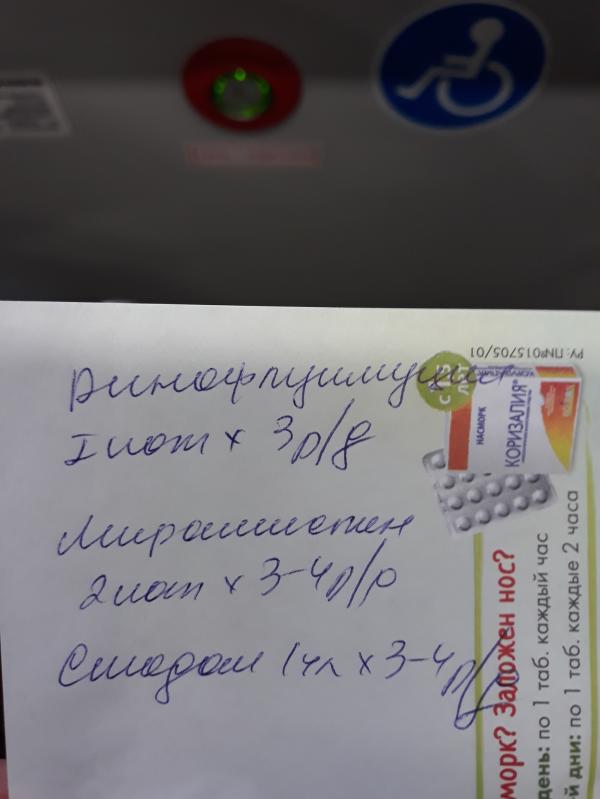 Ринофлуимуцил
1 нат х 3 р/д
Мирамистин
2 нат х 3-4 р/р
1 чл х 3-4 р/р
РУ: П№015705/01
НАСМОРК
КОРИЗАЛИЯ®
морк? Заложен нос?
день: по 1 таб. каждый час
й дни: по 1 таб. каждые 2 часа